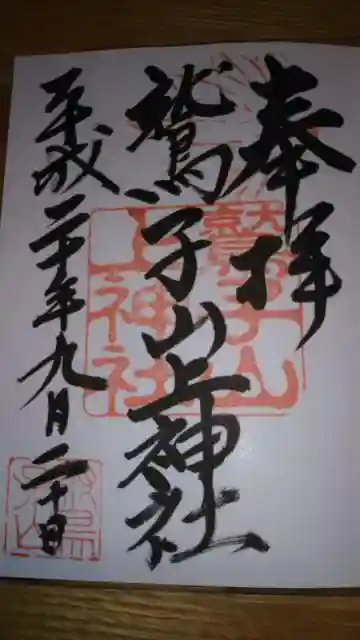 奉拝
鷲子山上神社
平成二十年九月二十日
鷲子山
上神社